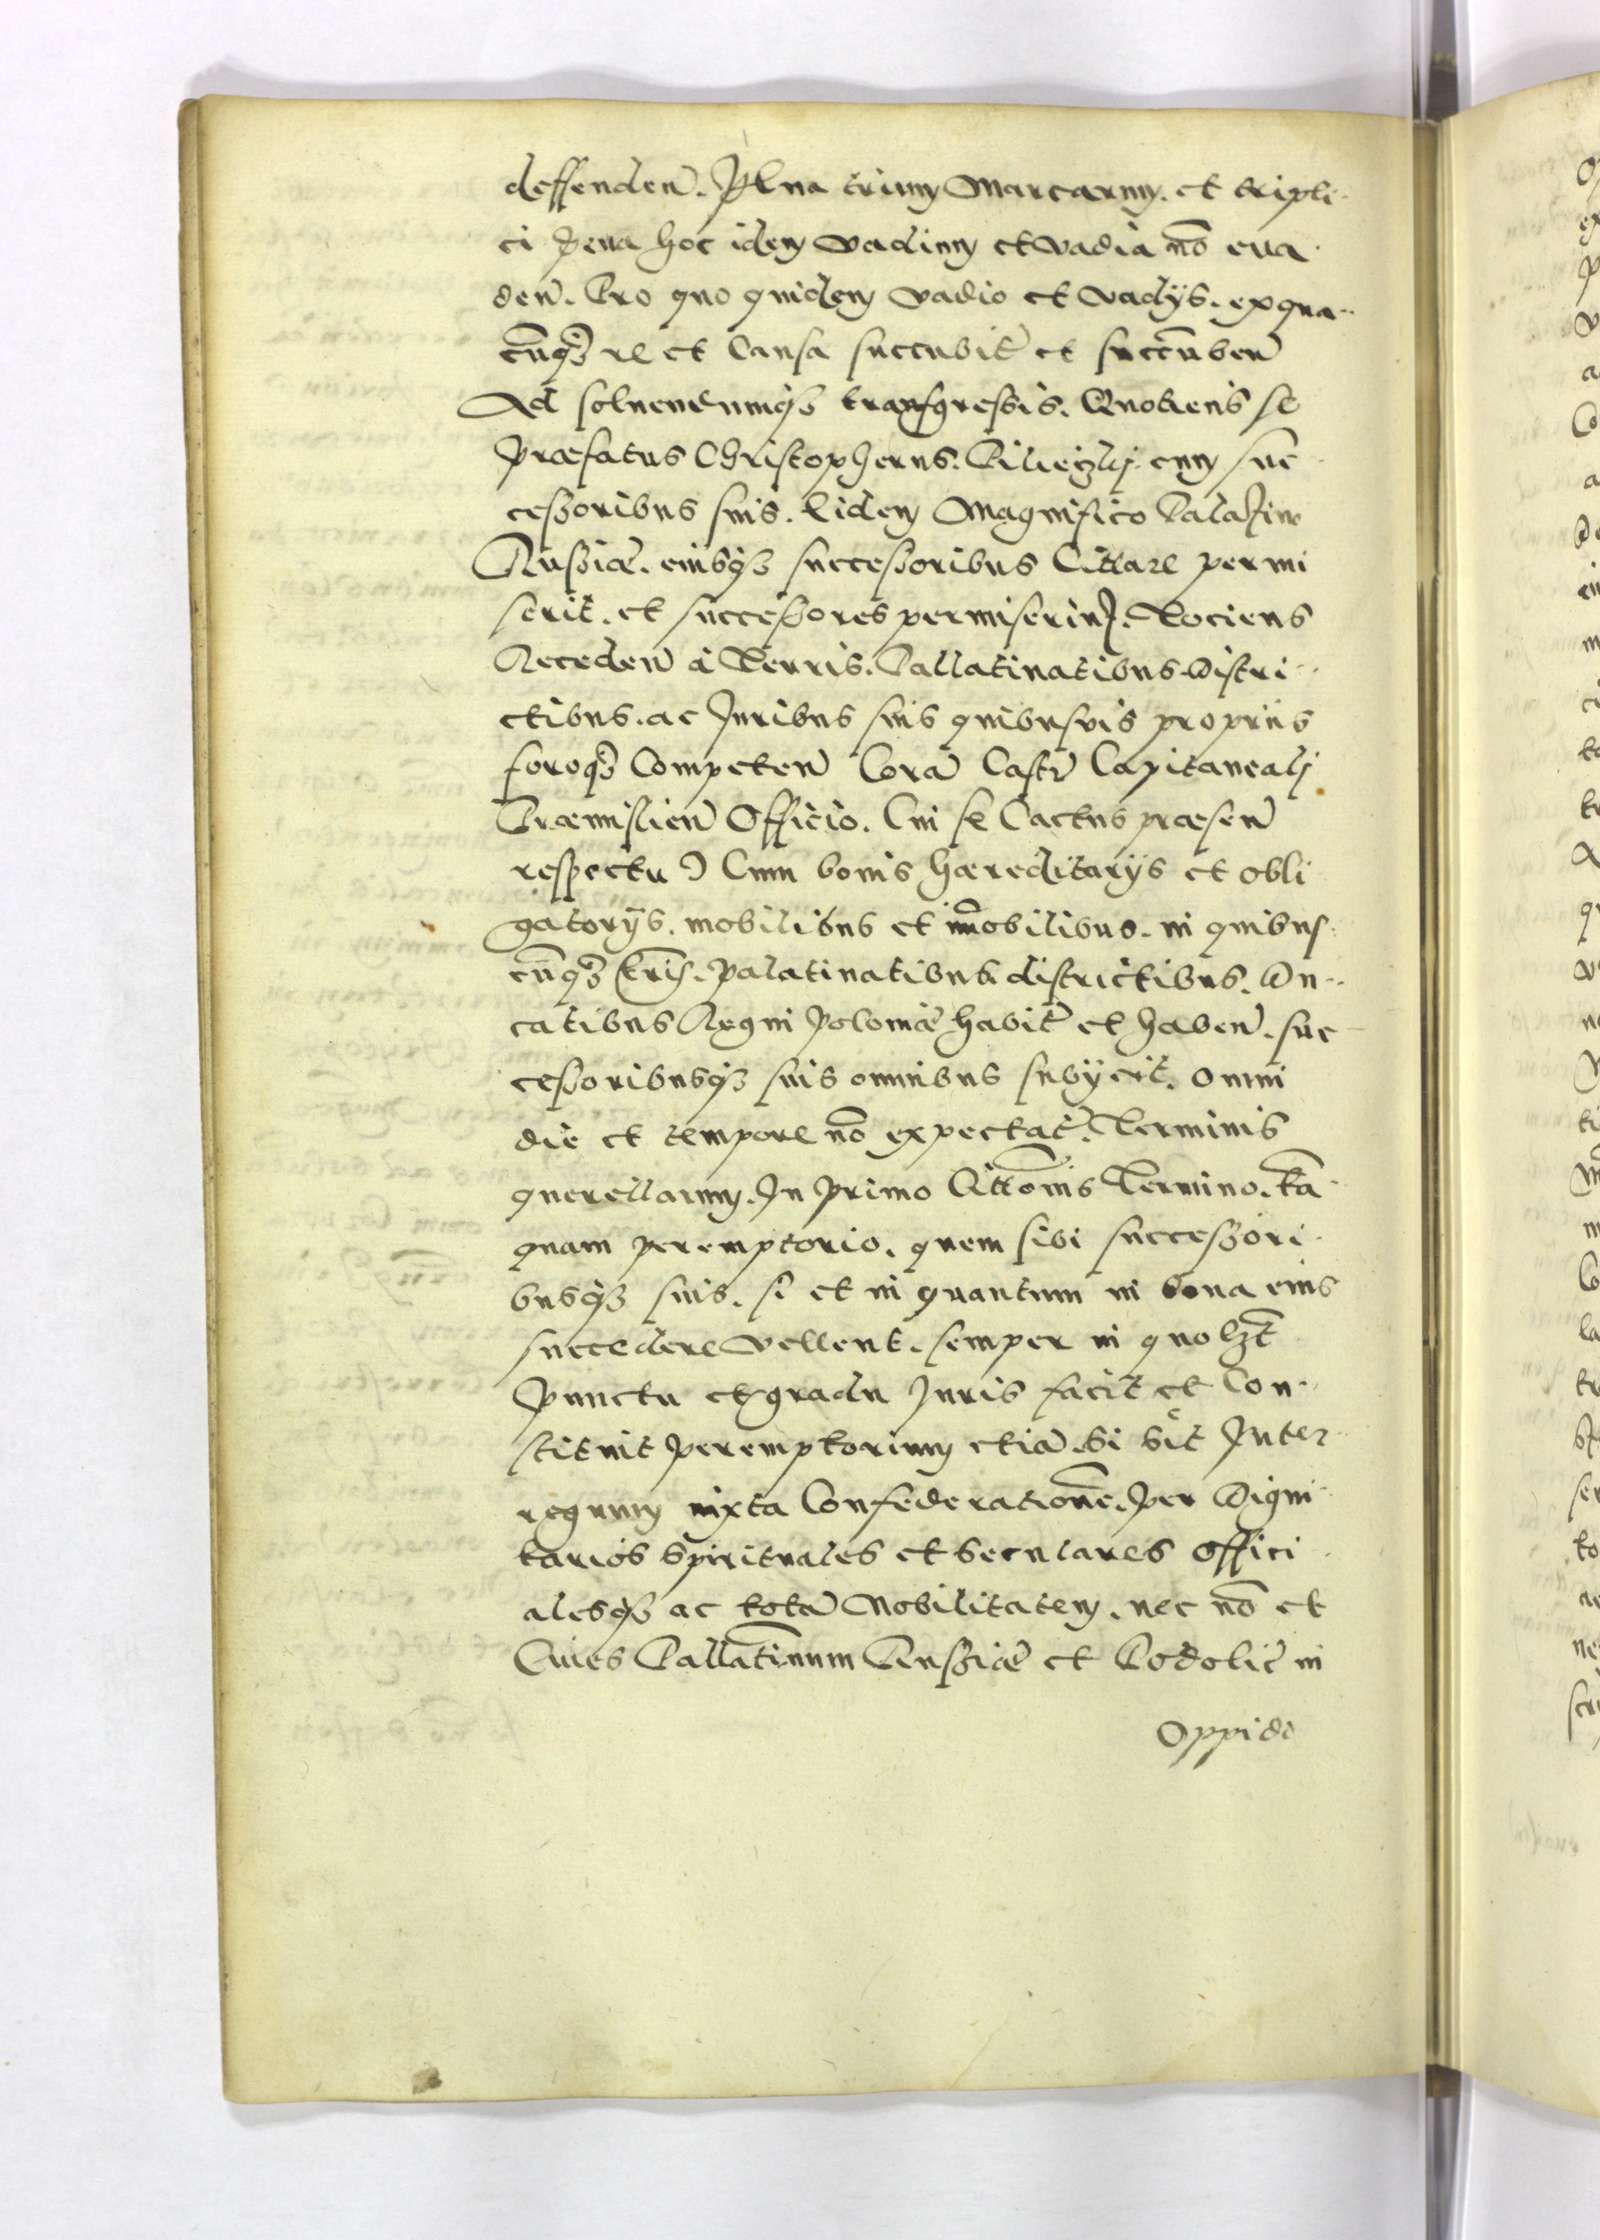 deffendeñ. Pena trium Marcarum. et tripli
ci pena hoc idem vadium et vadia nō eua
deñ. Pro quo quidem vadio et vadÿs. ex qua
cūqꝫ re et Causa succubit̄ et succūbeñ
Ad soluendumqꝫ transgressis. Quotiens se
Præfatus Christopherus. cum suc
cessoribus suis. Eidem Magnifico Palatino
Russiæ. eiusqꝫ successoribus Cittare permi
serit. et successores permiserint. Tociens
Recedeñ à Terris. Pallatinatibus Distri
ctibus. ac Juribus suis quibusvis proprijs
foroqꝫ Competeñ Corā Castr̄ Capitaneali
Præmislieñ Officio. Cui se Cactus præseñ
respectu Cum bonis hæreditarÿs et obli
gatorÿs. mobilibus et im̄obilibus. in quibus
cūqꝫ terris. Palatinatibus districtibus. Du
catibus Regni Poloniæ habit̄ et habeñ. suc
cessoribusqꝫ suis omnibus subÿcit. omni
die et tempore nō expectat̄. Terminis
querellarum. In primo Citt̄onis Termino. tā
quam peremptorio. quem sibi successori
busqꝫ suis. si et in quantum in bona eius
succedere vellent. semper in quolꝫt
Punctu et gradu Juris facit et Con
stituit peremptorium etiā. Si sit Inter
regnum iuxta Confederationē. per Digni
tarios Spirituales et Seculares offici
alesqꝫ ac totā Nobilitatem. nec nō et
Ciues Pallatinum Russiæ et Podoliæ in
Oppido